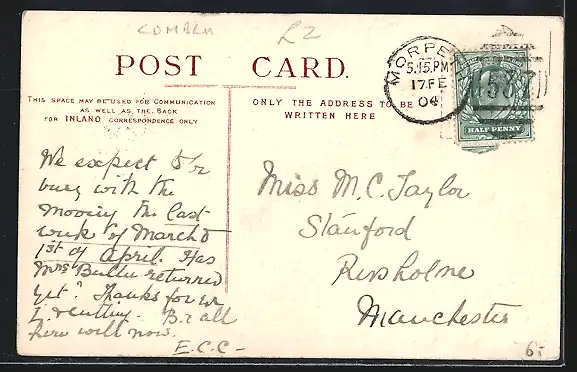 £2
POST CARD.
THIS SPACE MAY BE USED FOR COMMUNICATION
AS WELL AS THE BACK
FOR INLAND CORRESPONDENCE ONLY
ONLY THE ADDRESS TO BE
WRITTEN HERE
MORPE
5.15.PM
17.FE
04
HALF PENNY
We expect to be
busy with the
mooring the last
week of March &
1st of April. Has
Mrs returned
yet? Thanks for
all
here well now.
E.C.C-
Miss M.C. Taylor
Stanford
Rusholme
Manchester
6-